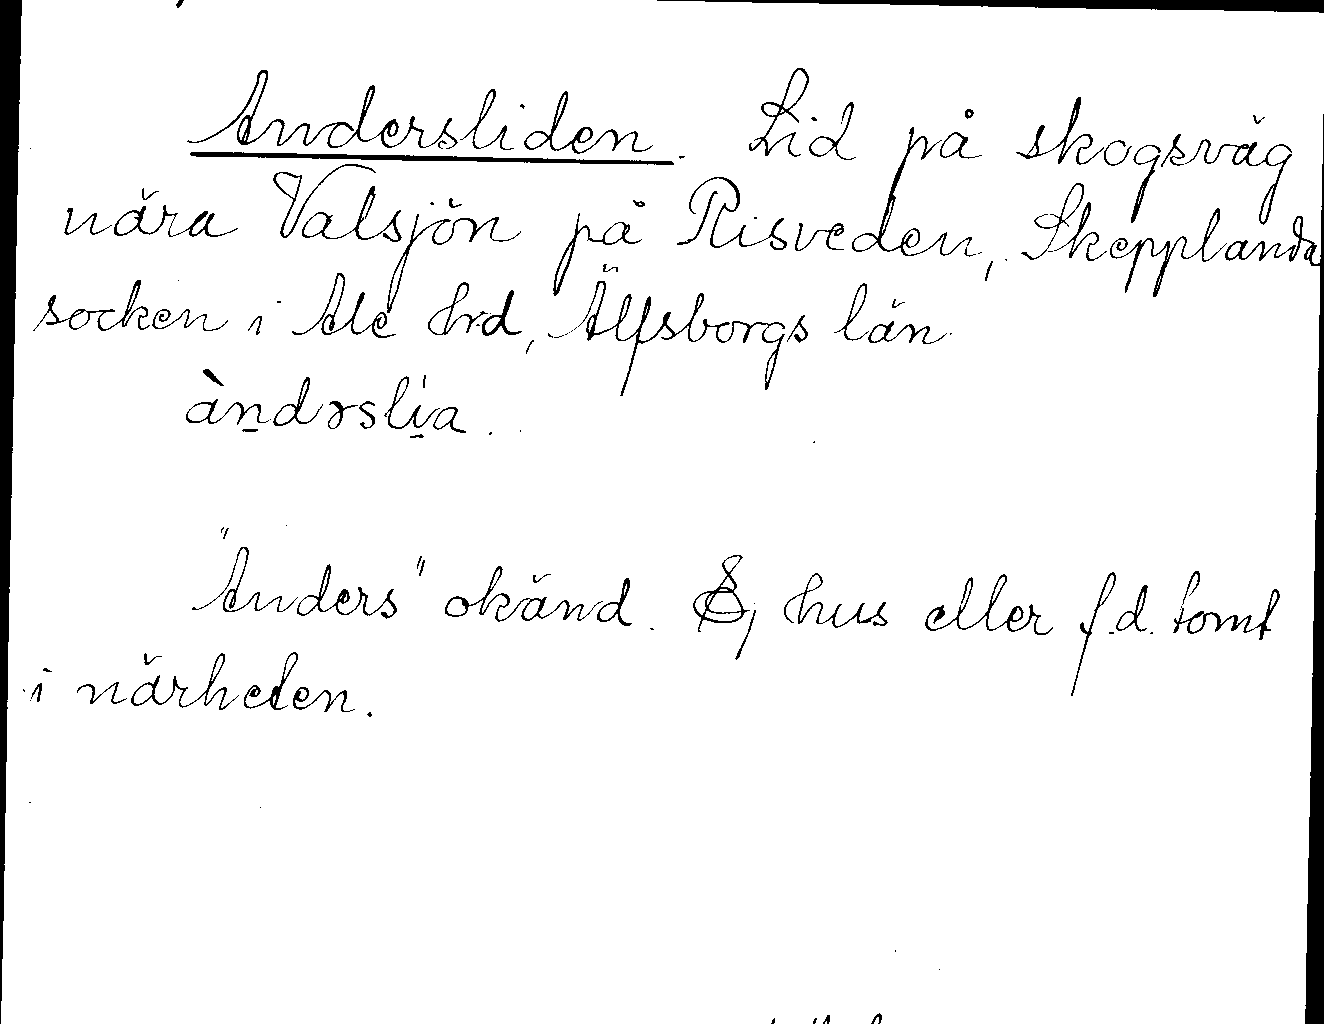 Andersliden. Lid på skogsväg
nära Valsjön på Risveden, Skepplanda
socken i Ale hrd, Älfsborgs län
àndərslia.
"Anders" okänd. Ej hus eller f.d. tomt
i närheten.